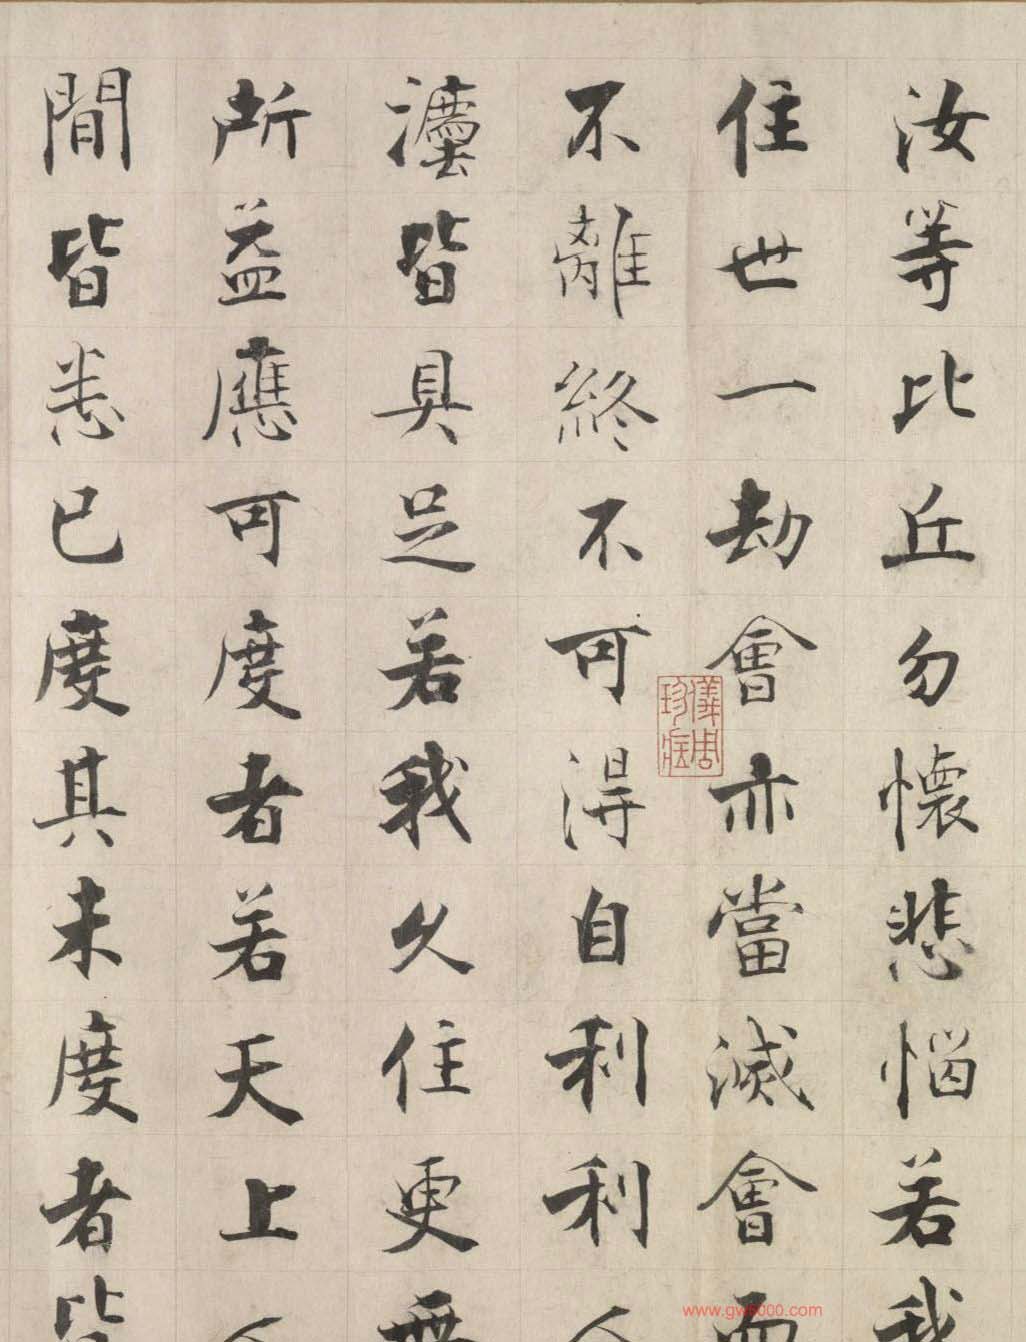 汝等比丘勿懷悲惱若我
住世一劫會亦當滅會而
不離終不可得自利利人
灋皆具足若我久住更無
所益應可度者若天上人
間皆悉已度其未度者皆
儀周珍藏
www.gw8000.com